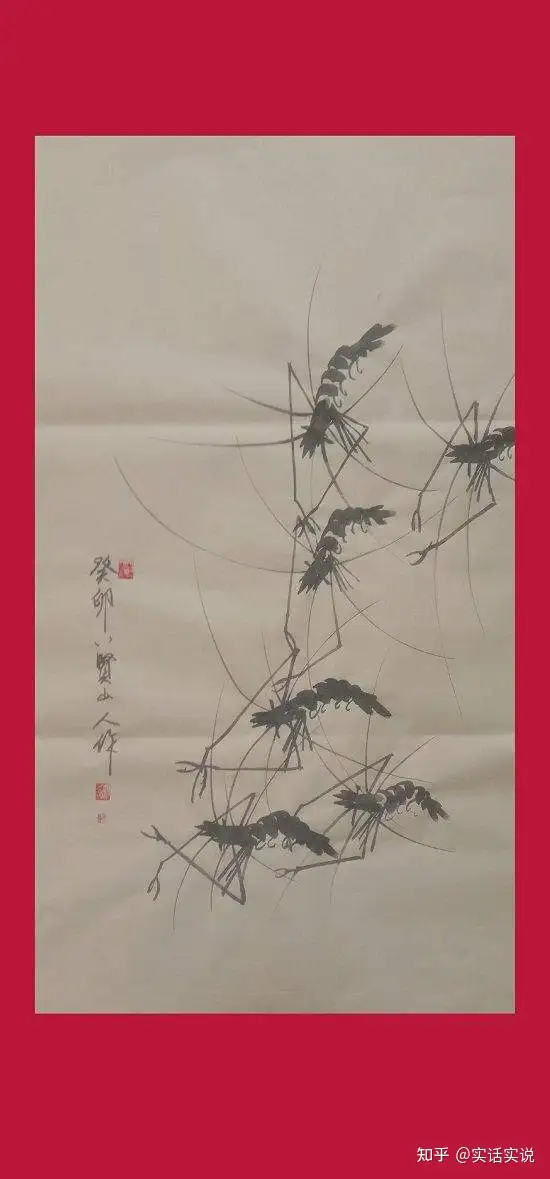 癸卯八賢山人作
知乎 @实话实说